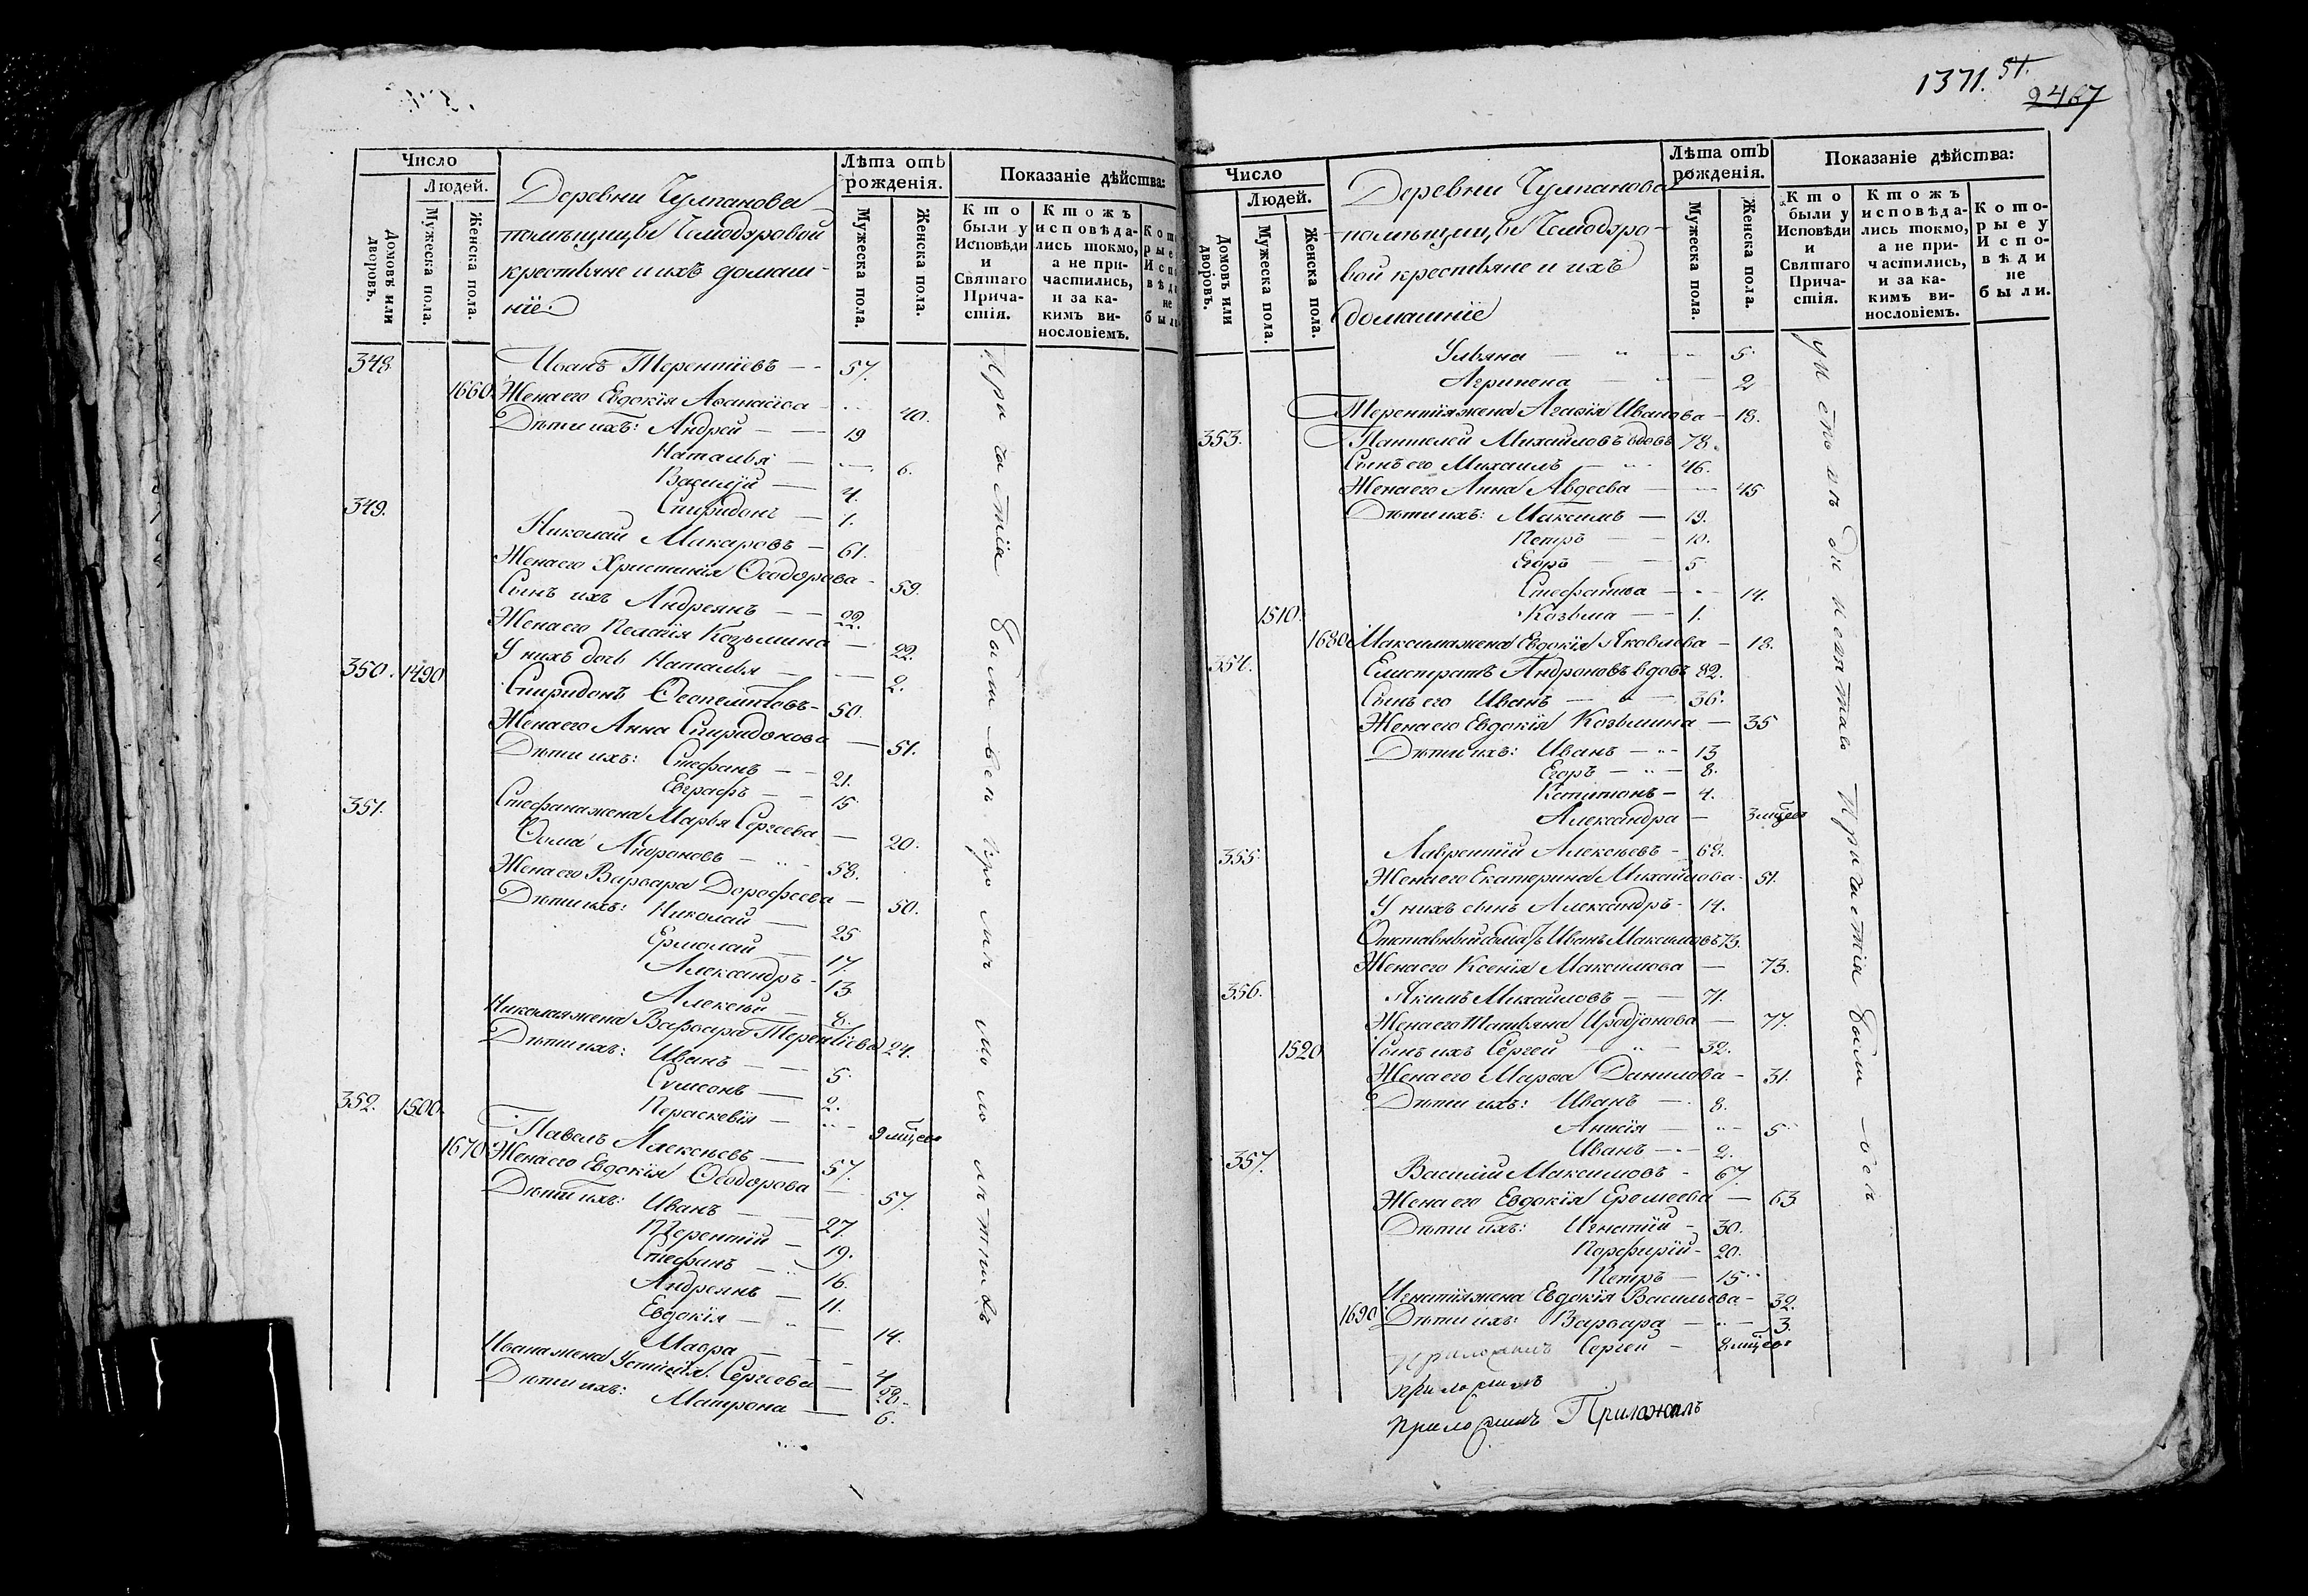 Число
Людей.
Домовъ или дворовъ.
Мужеска пола.
Женска пола.
Деревни Чулпанова
помѣщицы Чемодуровой
крестьяне и ихъ домаш-
ніе.
Лѣта отъ рожденія.
Мужеска пола.
Женска пола.
Показаніе дѣйства:
Кто были у Исповѣди и Святаго Причастія.
Ктожъ исповѣдались токмо, а не причастились, и за какимъ винословіемъ.
348. Иванъ Терентіевъ 57.
1660. Жена его Евдокія 40.
Дѣти ихъ: Андрей 19
Наталья 6.
Василій 4.
Спиридонъ 1.
349. Николай Макаровъ 61.
Жена его Христинія Ѳеодорова 59.
Сынъ ихъ Андреянъ 22.
Жена его Пелагія Козьмина 22.
У нихъ дочь Наталья 2.
350. 1490 Спиридонъ 50.
Жена его Анна Спиридонова 51.
Дѣти ихъ: Стефанъ 21.
Евграфъ 15
Стефана жена Марья Сергеева 20.
351. Ѳома Андроновъ 58.
Жена его Варвара Дорофеева 50.
Дѣти ихъ: Николай 25
Ермолай 17.
Александръ 13
Алексѣй 8.
Николая жена Варвара Терентіева 24.
Дѣти ихъ: Иванъ 5.
Симеонъ 2.
Параскевія 9 мцсевъ
352. 1500. Павелъ Алексѣевъ 57.
1670 Жена его Евдокія Ѳеодорова 57.
Дѣти ихъ: Иванъ 27.
Терентій 19.
Стефанъ 16.
Андреянъ 11.
Евдокія 14.
Мавра 4
Ивана жена Устинія Сергеева 28.
Дѣти ихъ: Матрона 6.
Причастія были
1371. 51.
2467
Число
Людей.
Домовъ или дворовъ.
Мужеска пола.
Женска пола.
Деревни Чулпанова
помѣщицы Чемодуро-
вой крестьяне и ихъ
домашніе
Лѣта отъ рожденія.
Мужеска пола.
Женска пола.
Показаніе дѣйства:
Кто были у Исповѣди и Святаго Причастія.
Ктожъ исповѣдались токмо, а не причастились, и за какимъ винословіемъ.
Которые у Исповѣди не были.
Ульяна 5
Агрипена 2
Терентія жена Агафія Иванова 18.
353. Пантелей Михайловъ вдовъ 78.
Сынъ его Михаилъ 46.
Жена его Анна Авдеева 45
Дѣти ихъ: Максимъ 19.
Петръ 10.
Егоръ 5
14.
1510. Козьма 1.
1680 Максима жена Евдокія Яковлева 18.
354. Елистратъ Андроновъ вдовъ 82.
Сынъ его Иванъ 36.
Жена его Евдокія Козьмина 35
Дѣти ихъ: Иванъ 13
Егоръ 8.
4.
Александра 3 мцсевъ
355. Лаврентій Алексѣевъ 68.
Жена его Екатерина Михайлова 51.
У нихъ сынъ Александръ 14.
Отставный солдатъ Иванъ Максимовъ 73.
Жена его Ксенія Максимова 73.
356. Якимъ Михайловъ 71.
Жена его Татьяна Иродіонова 77.
1520 Сынъ ихъ Сергей 32.
Жена его Марфа Данилова 31.
Дѣти ихъ: Иванъ 8.
Анисія 5
Иванъ 2.
357. Василій Максимовъ 67.
Жена его Евдокія Еремеева 63
Дѣти ихъ: Игнатій 30.
Порфирій 20.
Петръ 15
Игнатія жена Евдокія Васильева 32.
1690. Дѣти ихъ: Варвара 3.
Сергей 8 мцсевъ
Приложилъ